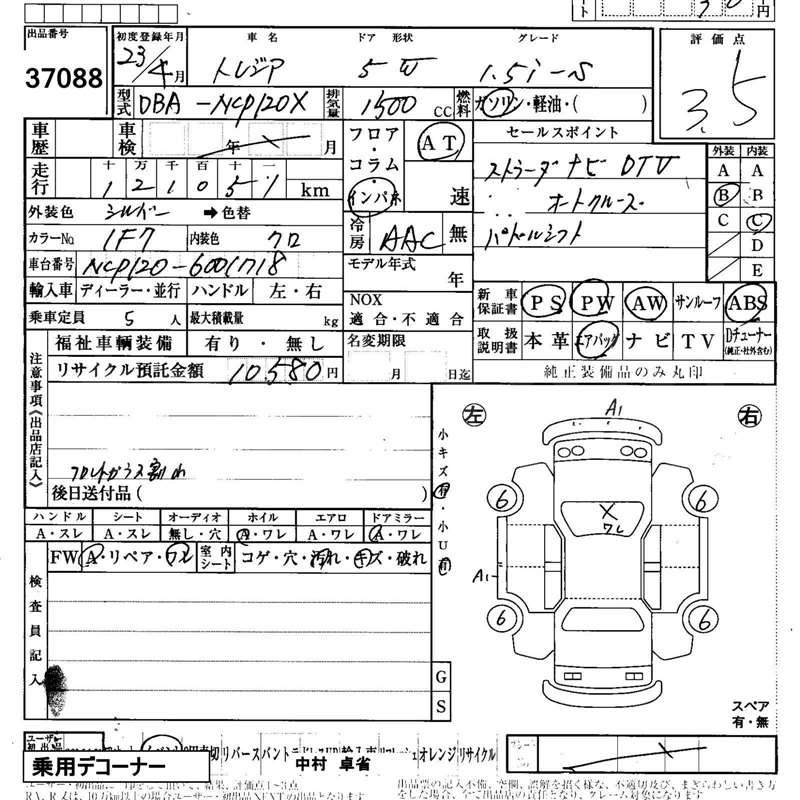 出品番号
37088
初度登録年月 車名 ドア 形状 グレード
23/4月 トレジア 5 W 1.5i-S
評価点
3.5
型式 DBA-NCP120X 排気量 1500 CC 燃料 ガソリン・軽油・( )
車歴 車検 年 月
フロア・コラム・インパネ AT 速
セールスポイント
ストラーダナビ DTV
オートクルーズ
パドルシフト
外装 内装
A A
B B
C C
D
E
走行 十 万 千 百 十 一
121051 km
外装色 シルバー ➡色替
カラーNo 1F7 内装色 クロ
冷房 AAC 無
車台番号 NCP120-6001718
モデル年式 年
輸入車 ディーラー・並行 ハンドル 左・右
NOX 適合・不適合
新車保証書 PS PW AW サンルーフ ABS
乗車定員 5 人 最大積載量 kg
取扱説明書 本革 エアバッグ ナビ TV Dチューナー(純正・社外含む)
純正装備品のみ丸印
注意事項《出品店記入》
福祉車輌装備 有り・無し
名変期限
月 日迄
リサイクル預託金額 10,580円
フロントガラス割れ
後日送付品( )
左 右
A1
小キズ有・小U有
6 6
ワレ
A1
6 6
ハンドル シート オーディオ ホイル エアロ ドアミラー
A・スレ A・スレ 無し・穴 A・ワレ A・ワレ A・ワレ
FW A・リペア・ワレ 室内シート コゲ・穴・汚れ・キズ・破れ
検査員記入
G
S
スペア
有・無
リバース オレンジ リサイクル
乗用デコーナー
中村 卓省